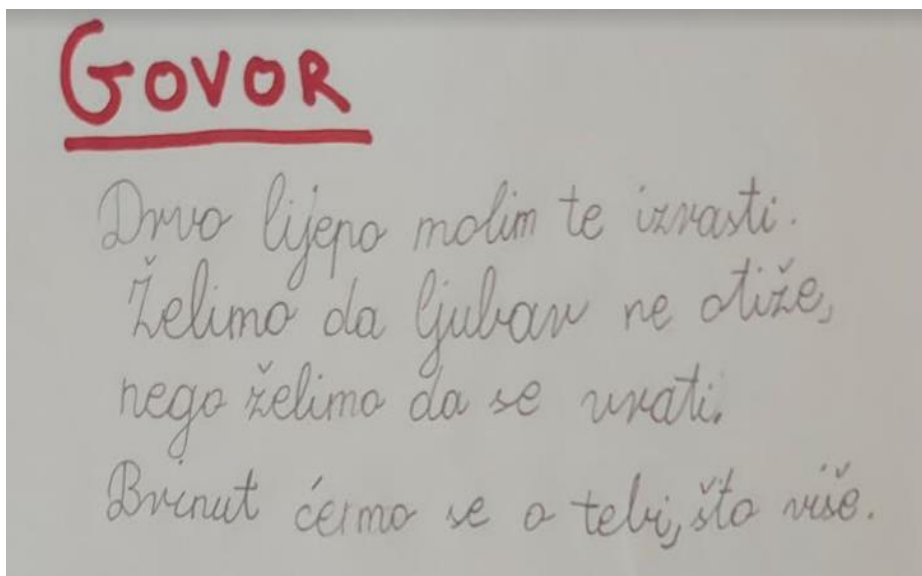 GOVOR
Drvo lijepo molim te izrasti.
Želimo da ljubav ne otiže,
nego želimo da se vrati.
Brinut ćemo se o tebi, što više.